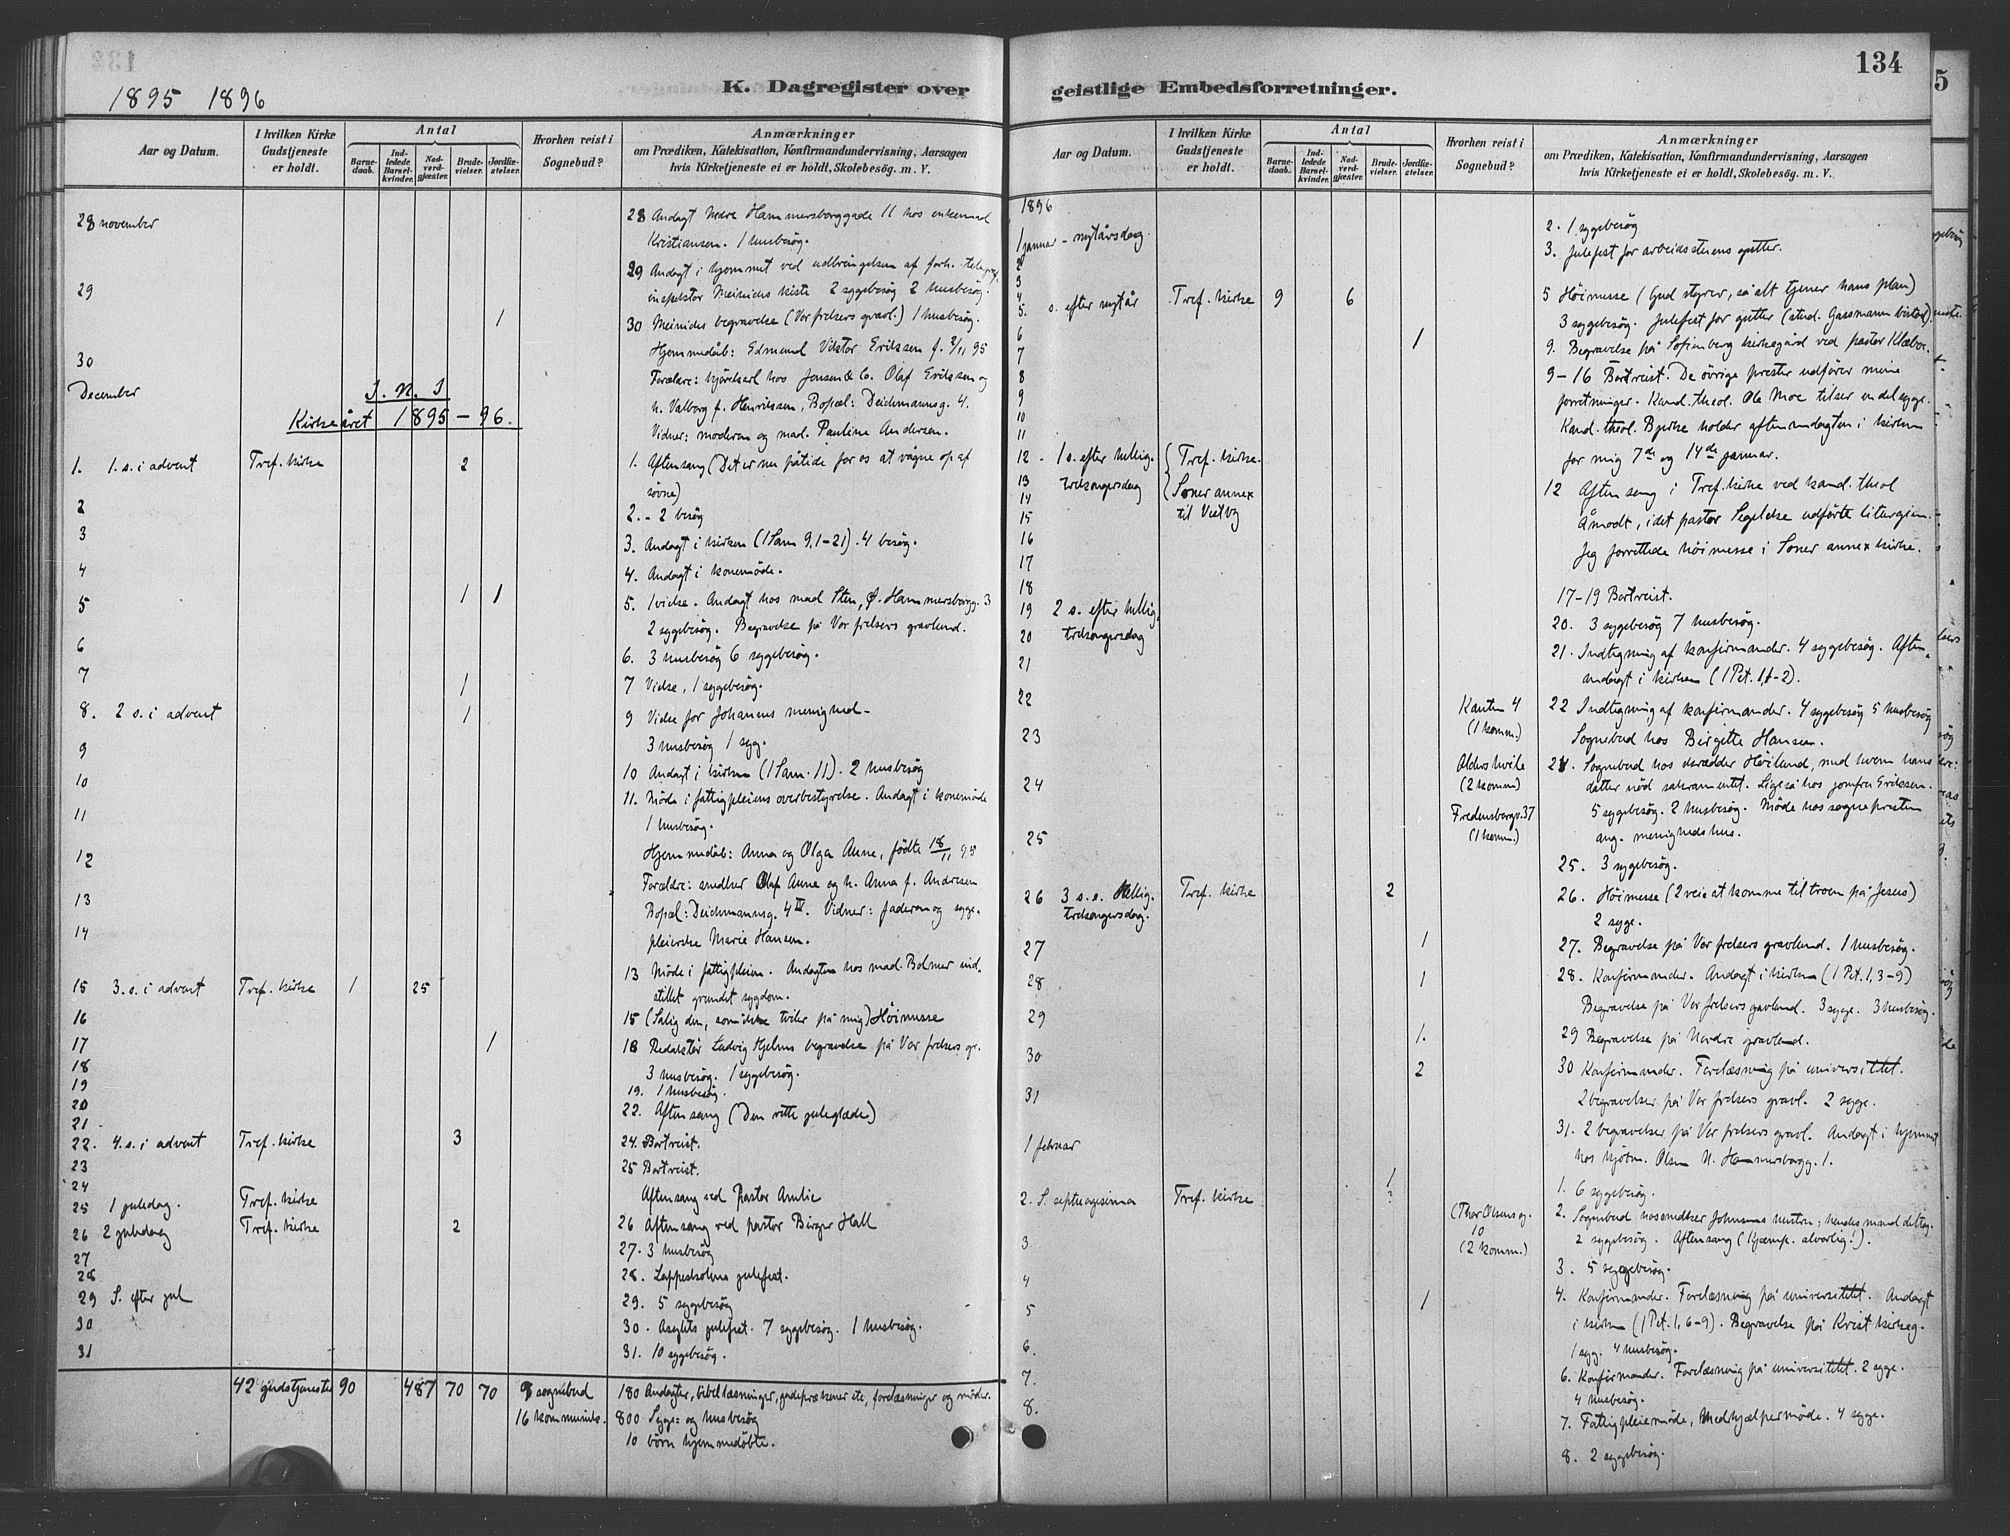 1895 1896
K. Dagregister over
Aar og Datum.
I hvilken Kirke Gudstjeneste er holdt.
Antal
Barnedaab.
Indledede Barselkvinder.
Nadverdgjæster.
Brudevielser.
Jordfæstelser.
Hvorhen reist i Sognebud?
Anmærkninger
om Prædiken, Katekisation, Konfirmandundervisning, Aarsagen
hvis Kirketjeneste ei er holdt, Skolebesög. m. V.
28 november
28 Andagt Nedre Hammersborggade 11 hos enkemad
Kristiansen. 1 husbesøg.
29
29 Andagt i hjemmet ved udbringelsen af forh. telegraf
inspektør Meinichs kiste 2 sygebesøg 2 husbesøg.
1
30 Meinichs begravelse (Vor frelsers gravl.) 1 husbesøg.
30
Hjemmedåb: Edmund Viktor Erikssen f. 3/11 95
December
Forældre: kjørekarl hos Jensen & Co. Olaf Erikssen og
I. N. J
h. Valborg f. Henrikssen, Bopæl: Deichmannsg. 4.
Kirkeåret 1895 – 96.
Vidner: moderen og mad. Pauline Andersen.
1. 1. s. i advent Tref. kirke 2
1. Aftensang (Det er nu påtide for os at vågne op af
søvne)
2
2. - 2 besøg
3
3. Andagt i kirken (1 Sam 9,1-21). 4 besøg.
4
4. Andagt i konemøde.
5 1 1
5. 1 vielse. Andagt hos mad Sten, Ø. Hammersborgg. 3
2 sygebesøg. Begravelse på Vor frelsers gravlund.
6
6. 3 husbesøg 6 sygebesøg.
7 1
7 Vielse, 1 sygebesøg.
8. 2 s. i advent 1
9 Vielse for Johannes menighed -
3 husbesøg 1 syg.
9
10
10 Andagt i kirken (1 Sam. 11). 2 husbesøg
11. Møde i fattigpleiens overbestyrelse. Andagt i konemøde
11
1 husbesøg.
12
Hjemmedåb: Anna og Olga Aune, fødte 18/11 95
Forældre: smedker Olaf Aune og h. Anna f. Andresen
13
Bopæl: Deichmannsg. 4 IV. Vidner: faderen og syge-
14
pleierske Marie Hansen.
13 Møde i fattigpleien. Andagten hos mad. Bolmer ind-
stillet grundet sygdom.
15 3. s. i advent Tref. kirke 1 25
16
15 (Salig den, som ikke tviler på mig) Høimesse
17 1
18 Redaktør Ludvig Hjelms begravelse på Vor frelsers gr.
18
3 husbesøg. 1 sygebesøg.
19
19. 1 husbesøg.
20
22. Aftensang (Den rette juleglæde)
21
22. 4. s. i advent Tref. kirke 3
24. Bortreist.
23
25 Bortreist.
24
25 1 juledag. Tref. kirke
Aftensang ved pastor
26 2 juledag Tref. kirke 2
26 Aftensang ved pastor Birger Hall
27
27. 3 husbesøg
28
28. Lappeskolens julefest.
29 S. efter jul
29. 5 sygebesøg
30
30. Asylets julefest. 7 sygebesøg. 1 husbesøg.
31
31. 10 sygebesøg.
42 gudstjenester 90 487 70 70 9 sognebud
16 kommunik.
180 Andagter, bibellæsninger, gadeprækener etc, forelæsninger og møder.
800 Syge- og husbesøg
10 børn hjemmedøbte.
134
geistlige Embedsforretninger.
Aar og Datum.
I hvilken Kirke Gudstjeneste er holdt.
Antal
Barnedaab.
Indledede Barselkvinder.
Nadverdgjæster.
Brudevielser.
Jordfæstelser.
Hvorhen reist i Sognebud?
Anmærkninger
om Prædiken, Katekisation, Konfirmandundervisning, Aarsagen
hvis Kirketjeneste ei er holdt, Skolebesög. m. V.
1896
1 januar - nytårsdag
2. 1 sygebesøg
2
3. Julefest for arbeidsstuens gutter.
3
4
5. s. efter nytår Tref. kirke 9 6
5 Høimesse (Gud styrer, så alt tjener hans plan)
3 sygebesøg. Julefest for gutter (stud. Gassmann bistod).
6 1
9. Begravelse på Sofienberg kirkegård ved pastor Klæboe.
7
8
9–16 Bortreist. De øvrige prester udfører mine
9
forretninger. Kand. theol. Ole Moe tilser en del syge.
10
Kand. theol. Bjerke holder aftenandagten i kirken
11
for mig 7de og 14de januar.
12 - 1 s. efter hellig- trekongersdag Tref. kirke.
Soner annex til Vestby
13
14
15
12 Aftensang i Tref. kirke ved kand. theol
Åmodt, idet pastor Segelcke udførte liturgien.
16
Jeg forrettede høimesse i Soner annexkirke.
17
18
17–19 Bortreist.
19 2 s. efter hellig- trekongersdag
20. 3 sygebesøg 7 husbesøg.
20
21. Indtegning af konfirmander. 4 sygebesøg. Aften-
21
andagt i kirken (1 Pet. 1,1-2).
22
Kanten 4
(1 komm.)
22 Indtegning af konfirmander. 4 sygebesøg 5 husbesøg
23
Sognebud hos Birgitte Hansen.
Alders hvile
(2 komm)
24
24. Sognebud hos Høilund, med hvem hans
datter nød sakramentet. Ligeså hos jomfru Erikssen.
Fredensborgv. 37
(1 komm.)
5 sygebesøg. 2 husbesøg. Møde hos sognepresten
25
ang. menighedshus.
25. 3 sygebesøg.
26 3 s. e. Hellig- trekongersdag. Tref. kirke 2
26. Høimesse (2 veie at komme til troen på Jesus)
2 syge.
27 1
27. Begravelse på Vor frelsers gravlund. 1 husbesøg.
28 1
28. Konfirmander. Andagt i kirken (1 Pet. 1, 3–9)
Begravelse på Vor frelsers gravlund. 3 syge. 3 husbesøg.
29 1.
29 Begravelse på Nordre gravlund.
30 2
30 Konfirmander. Forelæsning på universitetet.
2 begravelser på Vor frelsers gravl. 2 syge.
31
31. 2 begravelser på Vor frelsers gravl. Andagt i hjemmet
1 februar
hos kjøbm. Olsen N. Hammersborgg. 1.
1
1. 6 sygebesøg.
2. S. septuagesima Tref. kirke ?
(Thor Olsens g.
10
(2 komm.)
2. Sognebud hos snedker Johnsens hustru; hendes mand deltog.
2 sygebesøg. Aftensang (Kjæmp. alvorlig!).
3
3. 5 sygebesøg.
4
4. Konfirmander. Forelæsning på universitetet. Andagt
5 1
i kirken (1 Pet. 1, 6–9). Begravelse på Krist kirkeg.
6.
1 syg. 4 husbesøg.
7.
6. Konfirmander. Forelæsning på universitetet. 2 syge.
4 husbesøg.
8.
7. Fattigpleiemøde, Medhjælpermøde. 4 syge.
8. 2 sygebesøg.
5